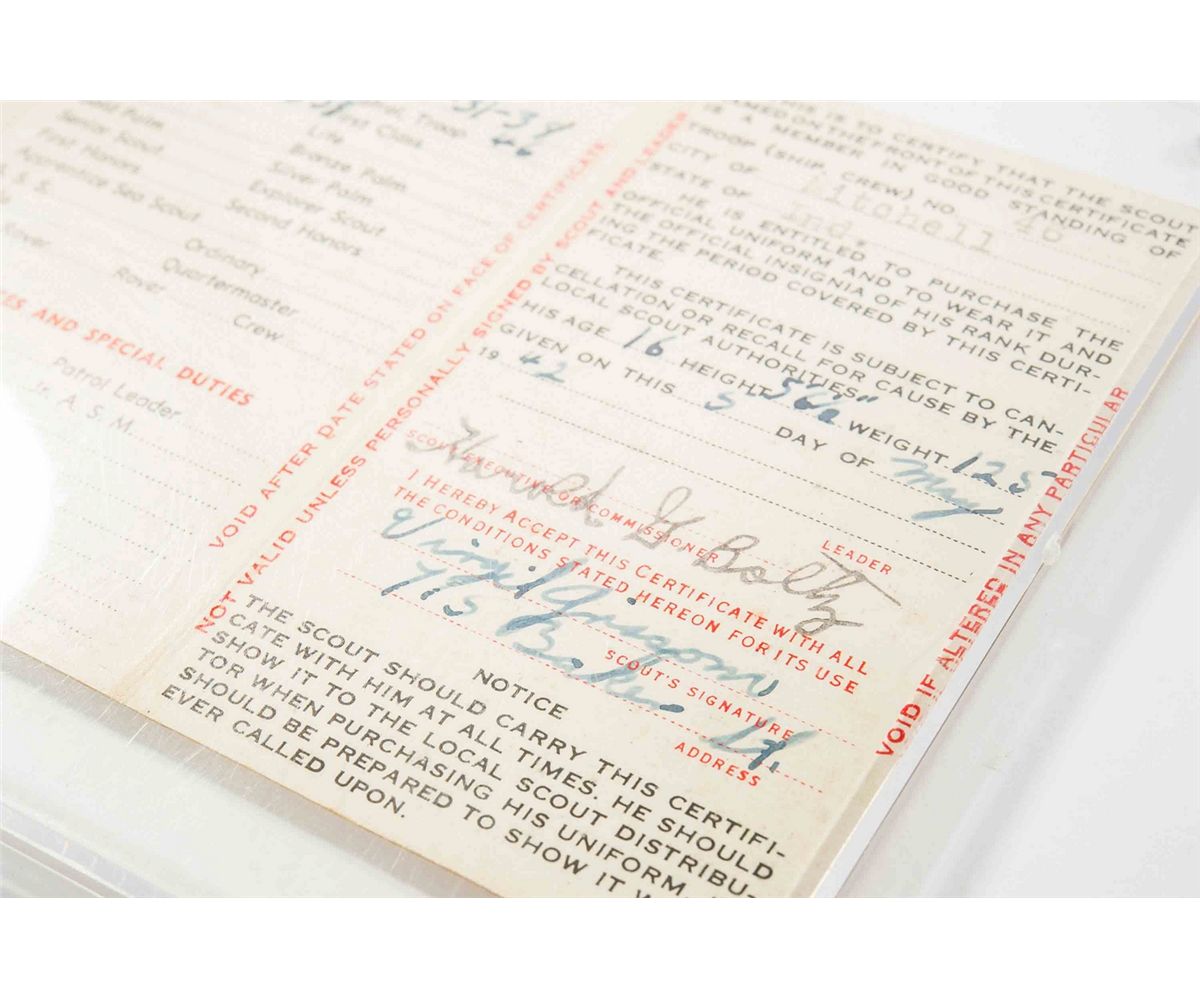 Palm
Senior Scout
First Honors
Apprentice Sea Scout
S. S. S.
Troop 31-39
First Class
Life
Bronze Palm
Silver Palm
Explorer Scout
Second Honors
Ordinary
Quartermaster
Rover
Crew
AND SPECIAL DUTIES
Patrol Leader
Jr. A. S. M.
VOID AFTER DATE STATED ON FACE OF CERTIFICATE.
NOT VALID UNLESS PERSONALLY SIGNED BY SCOUT AND LEADER
THIS IS TO CERTIFY THAT THE SCOUT
NAMED ON THE FRONT OF THIS CERTIFICATE
IS A MEMBER IN GOOD STANDING OF
TROOP (SHIP, CREW) NO. 46
CITY OF Mitchell
STATE OF Ind.
HE IS ENTITLED TO PURCHASE THE
OFFICIAL UNIFORM AND TO WEAR IT AND
THE OFFICIAL INSIGNIA OF HIS RANK DUR-
ING THE PERIOD COVERED BY THIS CERTI-
FICATE.
THIS CERTIFICATE IS SUBJECT TO CAN-
CELLATION OR RECALL FOR CAUSE BY THE
LOCAL SCOUT AUTHORITIES.
HIS AGE 16 HEIGHT WEIGHT 125
GIVEN ON THIS 5 DAY OF May
19 42
LEADER
SCOUT EXECUTIVE OR COMMISSIONER
I HEREBY ACCEPT THIS CERTIFICATE WITH ALL
THE CONDITIONS STATED HEREON FOR ITS USE
Virgil Grissom
SCOUT'S SIGNATURE
715 Baker St.
ADDRESS
NOTICE
THE SCOUT SHOULD CARRY THIS CERTIFI-
CATE WITH HIM AT ALL TIMES. HE SHOULD
SHOW IT TO THE LOCAL SCOUT DISTRIBU-
TOR WHEN PURCHASING HIS UNIFORM.
SHOULD BE PREPARED TO SHOW IT
EVER CALLED UPON.
VOID IF ALTERED IN ANY PARTICULAR